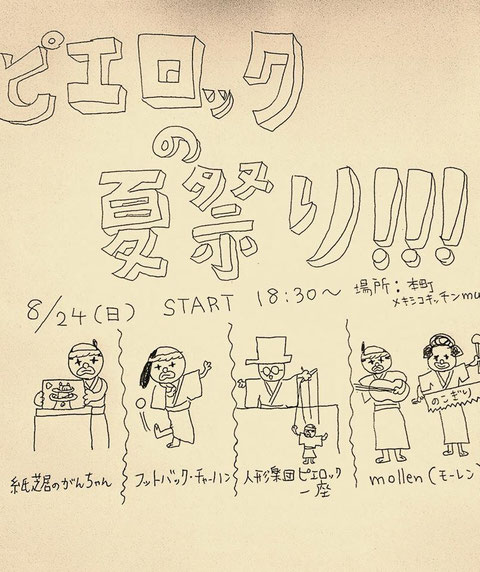 ピエロック
の
夏祭り!!!
8/24(日) START 18:30〜 場所:本町
メキシコキッチンmu
のこぎり
紙芝居のがんちゃん
フットバック・チャーハン
人形集団ピエロック
一座
mollen(モーレン)